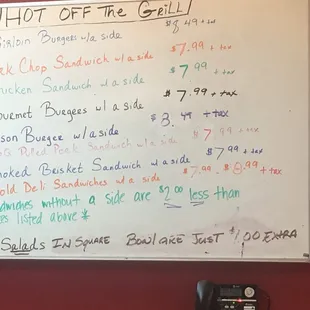 HOT OFF THE GRILL
irloin Burgers w/a side $8.49 + tax
rk Chop Sandwich w/a side $7.99 + tax
hicken Sandwich w/a side $7.99 + tax
ourmet Burgers w/ a side $7.99 + tax
son Burger w/ a side $8.49 + tax
Pulled Pork Sandwich w/a side $7.99 + tax
moked Brisket Sandwich w/a side $7.99 + tax
old Deli Sandwiches w/ a side $7.99 - $8.99 + tax
ndwiches without a side are $2.00 less than
es listed above *
Salads IN SQUARE BOWL ARE JUST $1.00 EXTRA